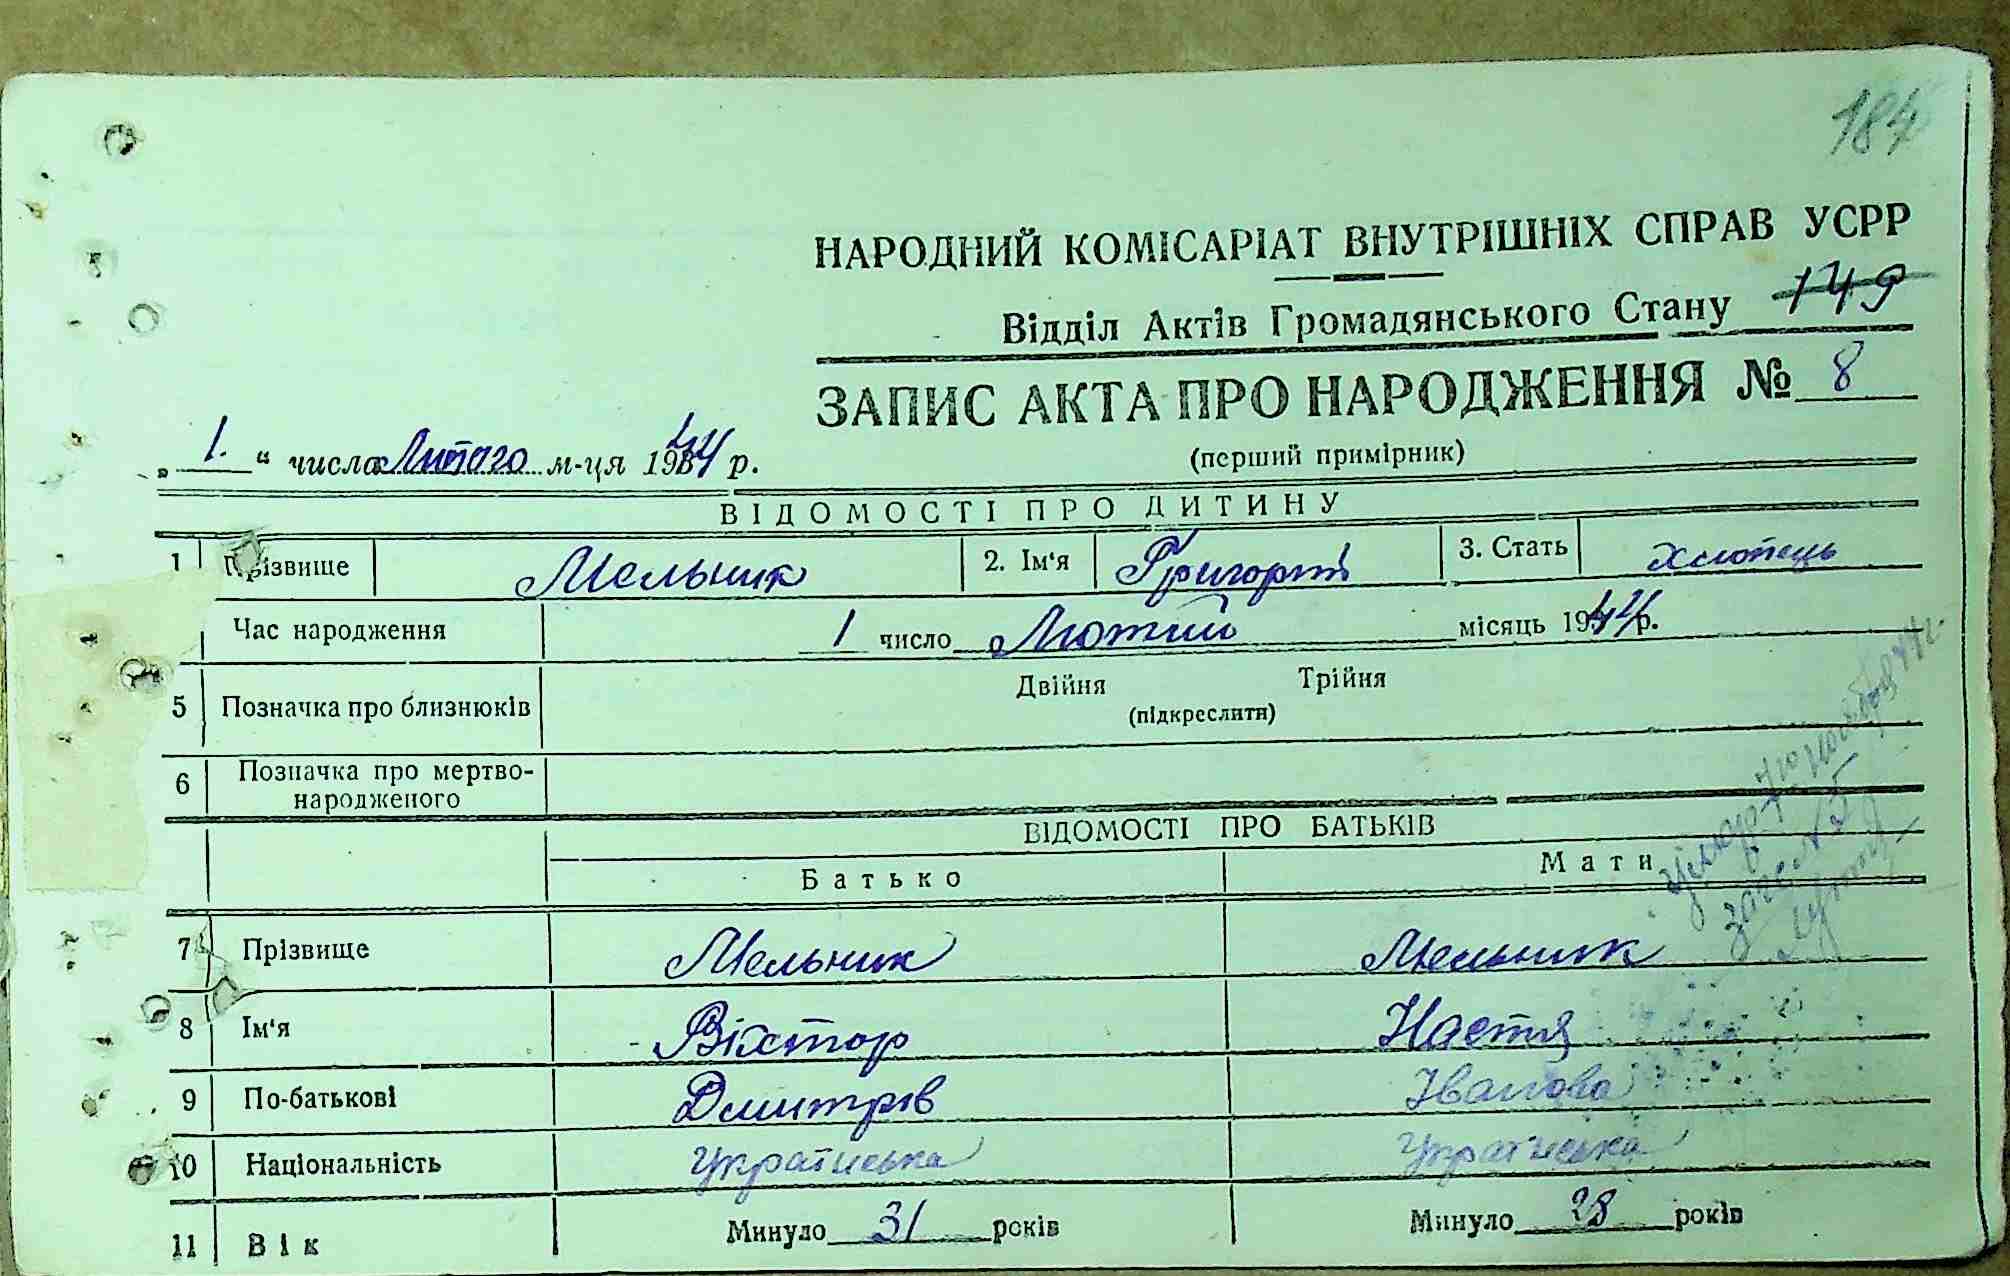 184
НАРОДНИЙ КОМІСАРІАТ ВНУТРІШНІХ СПРАВ УСРР
Відділ Актів Громадянського Стану 149
ЗАПИС АКТА ПРО НАРОДЖЕННЯ № 8
„ 1. “ числа Лютого м-ця 1944 р.
(перший примірник)
ВІДОМОСТІ ПРО ДИТИНУ
1 Прізвище Мельник 2. Ім'я Григорій 3. Стать хлопець
Час народження 1 число Лютий місяць 1944 р.
5 Позначка про близнюків Двійня Трійня
(підкреслити)
6 Позначка про мертво-
народженого
ВІДОМОСТІ ПРО БАТЬКІВ
Батько Мати
7 Прізвище Мельник Мельник
8 Ім'я Віктор Настя
9 По-батькові Дмитрів Іванова
10 Національність Українська Українська
11 Вік Минуло 31 років Минуло 28 років